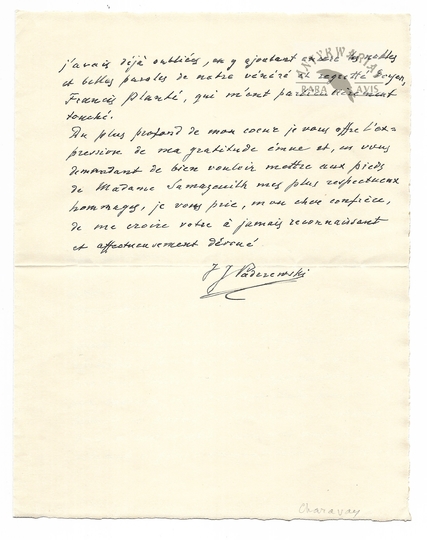 j'avais déjà oubliées, en y ajoutant encore les nobles
et belles paroles de notre vénéré et regretté Doyen,
Francis Planté, qui m'ont particulièrement
touché.
Du plus profond de mon coeur je vous offre l'ex-
pression de ma gratitude émue et, en vous
demandant de bien vouloir mettre aux pieds
de Madame Samazeuilh mes plus respectueux
hommages, je vous prie, mon cher confrère,
de me croire votre à jamais reconnaissant
et affectueusement dévoué
I J Paderewski
RARA AVIS